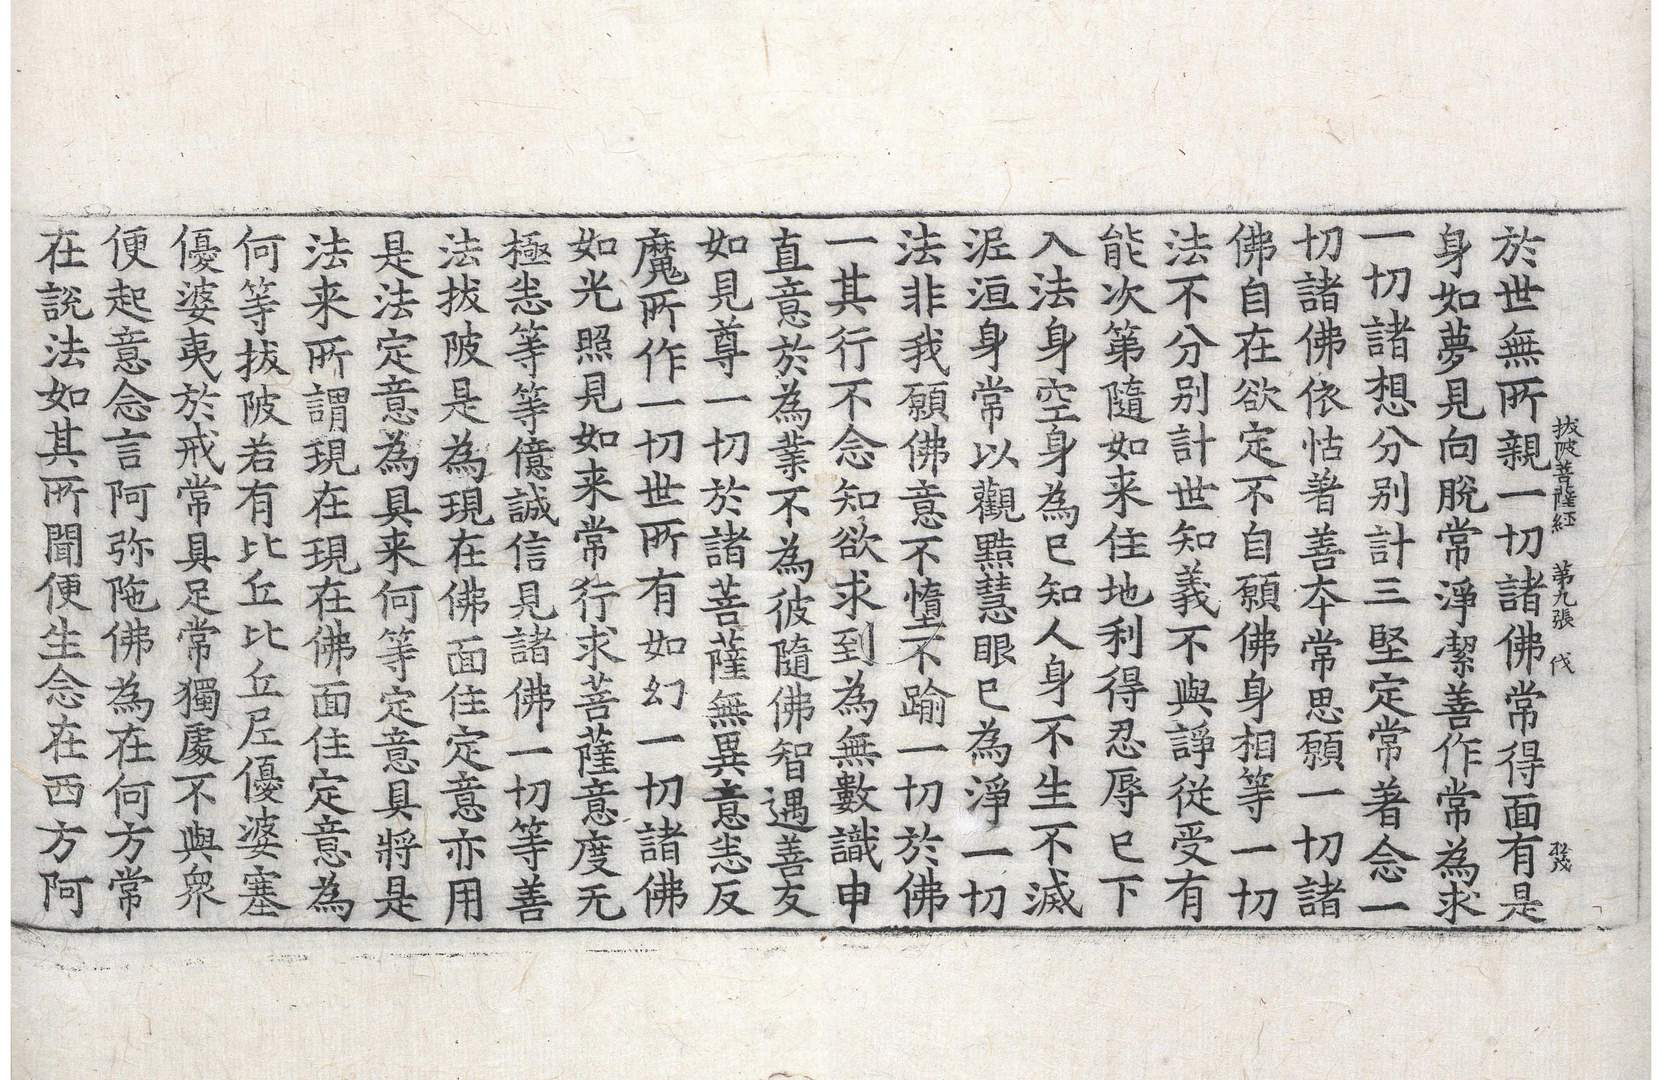 拔陂菩薩経 第九張 伐
於世無所親一切諸佛常得面有是
身如夢見向脫常淨潔善作常為求
一切諸想分别計三堅定常著念一
切諸佛依怙著善夲常思願一切諸
佛自在欲定不自願佛身相等一切
法不分别計世知義不與諍従受有
能次第隨如来住地利得忍辱已下
入法身空身為已知人身不生不滅
泥洹身常以觀㸃慧眼已為淨一切
法非我願佛意不墮不踰一切於佛
一其行不念知欲求到為無數識申
直意於為業不為彼隨佛智遇善友
如見尊一切於諸菩薩無異意恚反
魔所作一切世所有如幻一切諸佛
如光照見如来常行求菩薩意度无
極恚等等億誠信見諸佛一切等善
法拔陂是為現在佛面住定意亦用
是法定意為具来何等定意具將是
法来所謂現在現在佛面住定意為
何等拔陂若有比丘比丘尼優婆塞
優婆夷於戒常具足常獨處不與衆
便起意念言阿弥陁佛為在何方常
在說法如其所聞便生念在西方阿